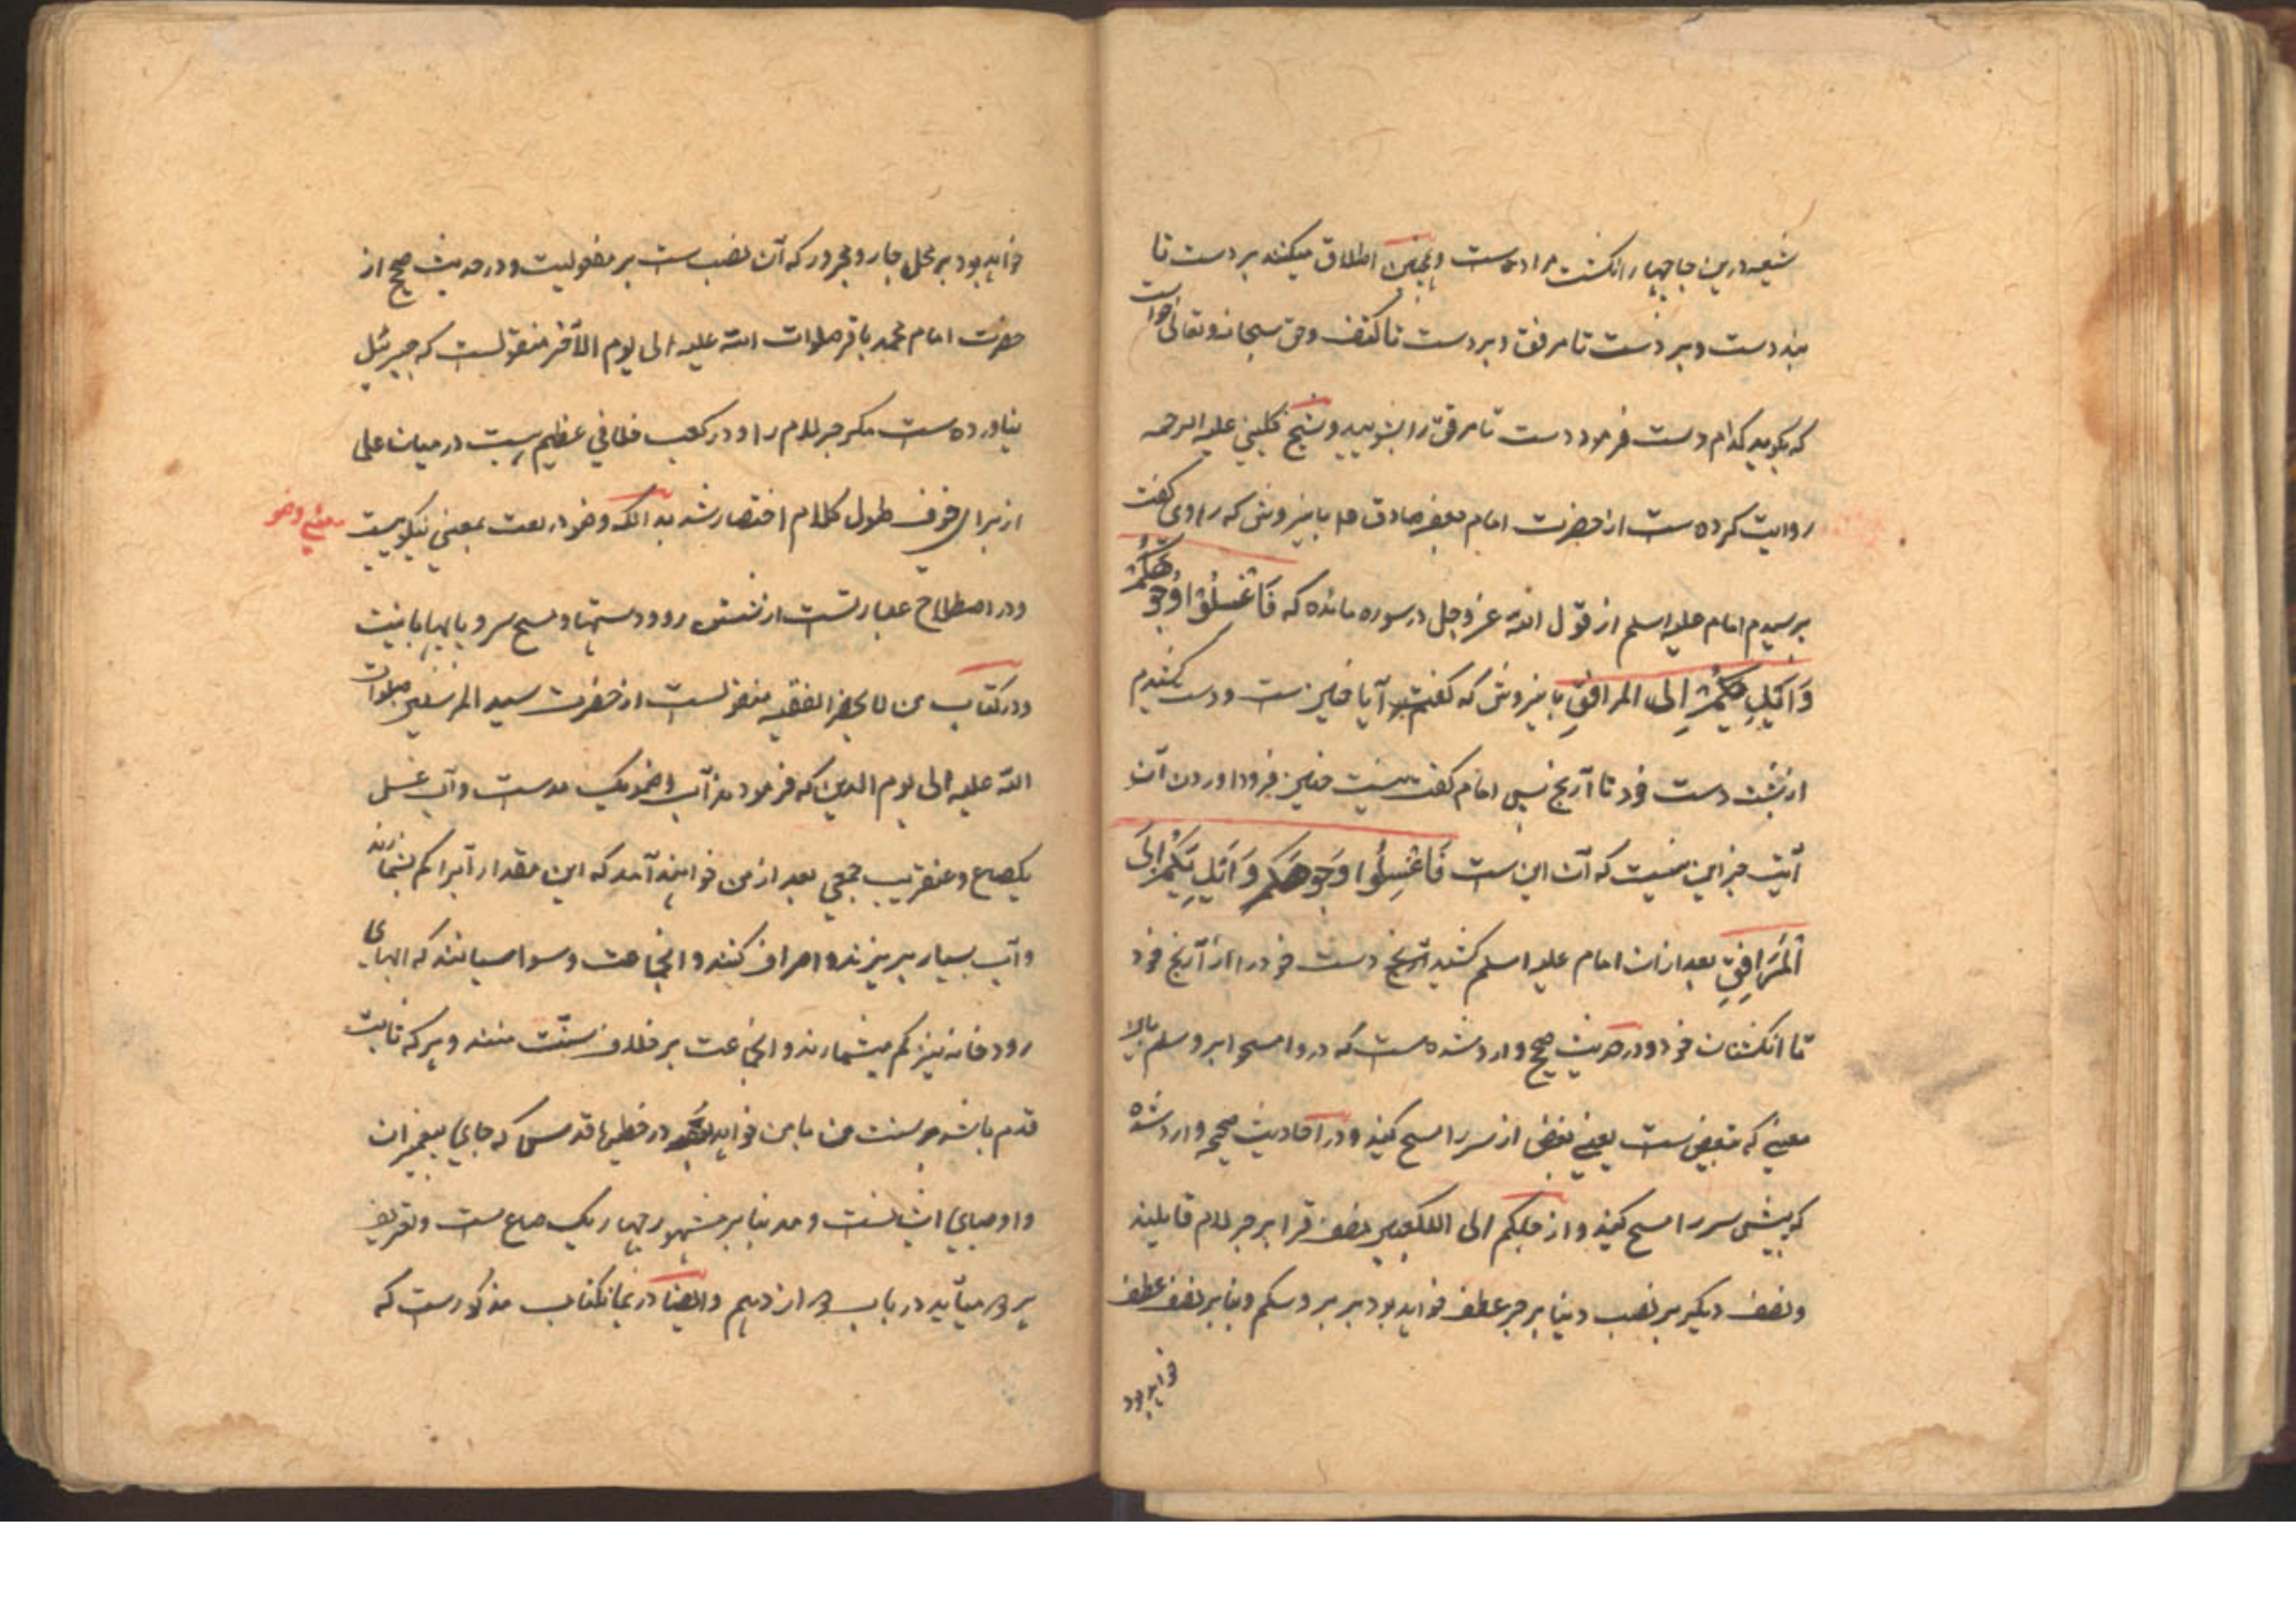 شیعه درین جا چهار انکشت مراد ست و همچنین اطلاق میکنند بر دست تا
بند دست و بر دست تا مرفق و بر دست تا کتف و حق سبحانه و تعالی خواست
که بگوید کدام دست فرمود دست تا مرفق را بشویید و شیخ کلینی علیه الرحمه
روایت کرده ست از حضرت امام جعفر صادق ع باینروش که راوی گفت
پرسیدم امام علیه اسلم از قول الله عز و جل در سوره مائده که فَاغْسِلُوْا وُجُوْهَكُمْ
وَاَيْدِيَكُمْ اِلی المرافقِ باینروش که گفتم آیا چنین ست و دست کشیدم
از پشت دست خود تا آرنج پس امام گفت نیست چنین فرود اوردن آن
آیت جز این نیست که آن این ست فَاغْسِلُوا وُجُوهَكُم وَاَيْدِيَكُمْ اِلَی
الْمَرَافِقِ بعد ازان امام علیه اسلم کشید دست خود را از آرنج خود
تا انکشتان خود و در حدیث صحیح وارد شده ست که در وامسحوا بروسکم با
معنی که تبعیض ست یعنی بعض از سر را مسح کنید و در احادیث صحیحه وارد شده
که پیش سر را مسح کنید و ارجلکم الی الکعبین نصف قرا بر جر لام قایلند
و نصف دیگر بر نصب و بنا بر جر عطف خواهد بود بر بروسکم و بنا بر نصب عطف
خواهد بود
خواهد بود بر محل جار و مجرور که آن نصب ست بر مفعولیت و در حدیث صحیح از
حضرت امام محمد باقر صلوات الله علیه الی یوم الآخر منقولست که جبرئیل
نیاورده ست مگر جر لام را و در کعب خلافی عظیم ست در میان علما
از برای خوف طول کلام اختصار شد بدانکه وضو در لغت بمعنی نیکوییست
معنی وضو
و در اصطلاح عبارتست از شستن رو و دستها و مسح سر و پایها با نیت
و در کتاب من لا یحضر الفقیه منقولست از حضرت سید المرسلین صلوات
الله علیه الی یوم الدین که فرمودند آب وضو یک مدست و آب غسل
یکصاع و عنقریب جمعی بعد از من خواهند آمد که این مقدار آبرا کم بشمارند
و آب بسیار بریزند و اسراف کنند و انجماعت وسواسیانند که ابهای
رودخانه نیز کم میشمارند و انجماعت بر خلاف سنّت منند و هر که ثابت
قدم باشد بر سنت من با من خواهد بود در حظیره قدس که جای پیغمبران
و اوصیای ایشانست و مد بنا بر مشهور چهار یک صاع ست و تعریف
در باب دوازدهم و ایضا در همانکتاب مذکورست که